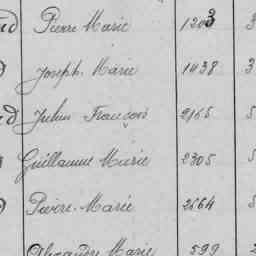 Pierre Marie 1203 3
Joseph. Marie 1438 3
Julien François 2165 5
Guillaume Marie 2305 5
Pierre. Marie 2664 5
Alexandre Marie 599